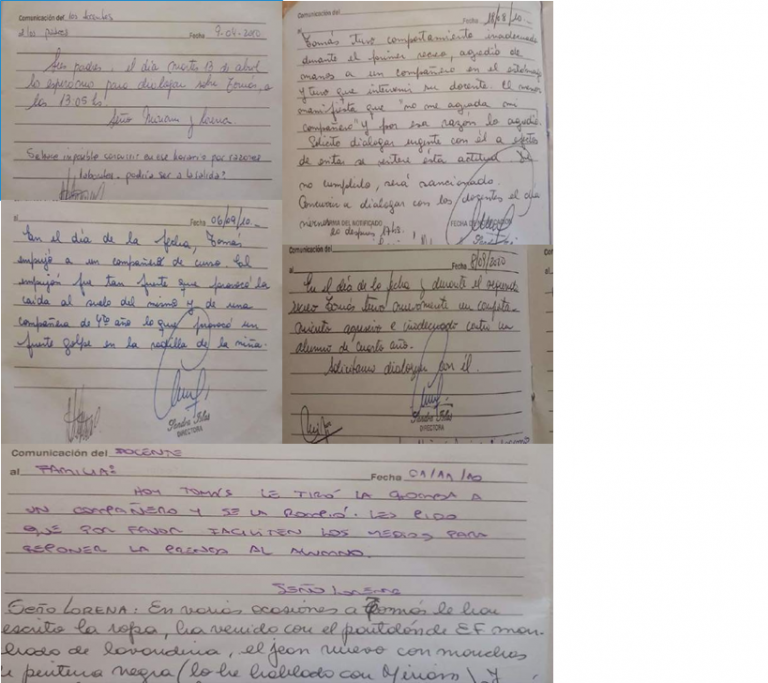 Comunicación del los docentes
a los padres Fecha 9-04-2010
Sres padres, el día martes 13 de abril
los esperamos para dialogar sobre Tomás, a
las 13:05 hs.
Seño Miriam y Lorena
imposible concurrir en ese horario por razones
laborales. podría ser a la salida?
Comunicación del
Fecha 18/08/10.-
"Tomás tuvo comportamiento inadecuado
durante el primer recreo, agredió de
manos a un compañero en el estómago
y tuvo que intervenir su docente. El menor
manifiesta que "no me agrada mi
compañero" y por esa razón lo agredió.
Solicito dialogar urgente con él a efectos
de evitar se reitere ésta actitud. De
no cumplirlo, será sancionado.
Concurrir a dialogar con los docentes el día
FIRMA DEL NOTIFICADO FECHA DE
al Fecha 06/09/10.-
En el día de la fecha, Tomás
empujó a un compañero de curso. Tal
empujón fue tan fuerte que provocó la
caída al suelo del mismo y de una
compañera de 4º año lo que provocó un
fuerte golpe en la rodilla de la niña.
DIRECTORA
Comunicación del
al Fecha 8/09/2010
En el día de la fecha y durante el segundo
recreo Tomás tuvo nuevamente un comporta-
miento agresivo e inadecuado contra un
alumno de cuarto año.
Solicitamos dialogar con él.
DIRECTORA
Comunicación del DOCENTE
al FAMILIA: Fecha 01/11/10
HOY TOMÁS LE TIRÓ LA CAMPERA A
UN COMPAÑERO Y SE LA ROMPIÓ. LES PIDO
QUE POR FAVOR FACILITEN LOS MEDIOS PARA
REPONER LA PRENDA AL ALUMNO.
SEÑO LORENA
SEÑO LORENA: En varias ocasiones a Tomás le han
escrito la ropa, ha venido con el pantalón de EF man-
chado de lavandina, el jean nuevo con manchas
de pintura negra (lo he hablado con Miriam) y